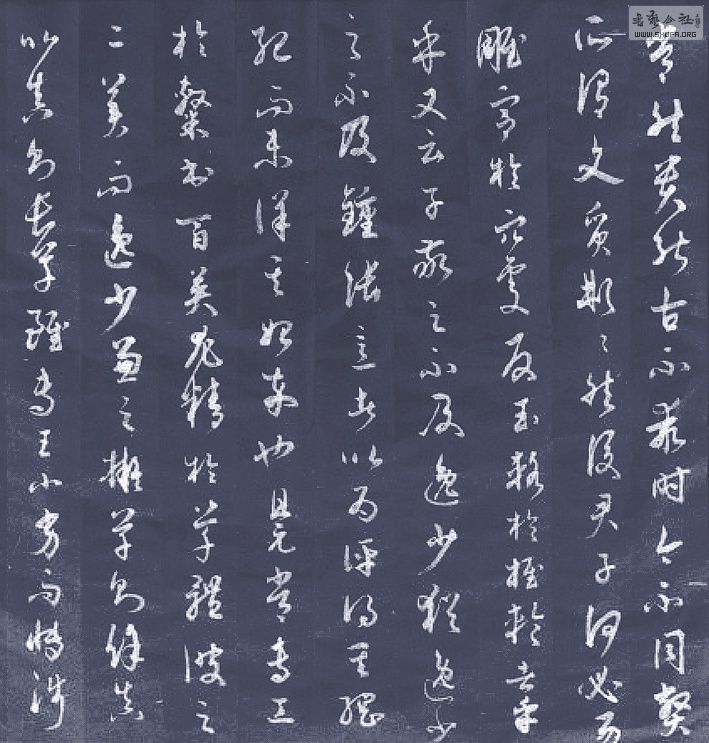 常然貴能古不乖時今不同弊
所謂文質彬彬然後君子何必易
雕宮於穴處反玉輅於椎輪者
乎又云子敬之不及逸少猶逸少
之不及鍾張意者以為評得其綱
紀而未詳其始卒也且元常專工
於隸書百英尤精於草體彼之
二美而逸少兼之擬草則餘真
比真則長草雖專工小劣而博涉
书艺公社
WWW.SHUFA.ORG